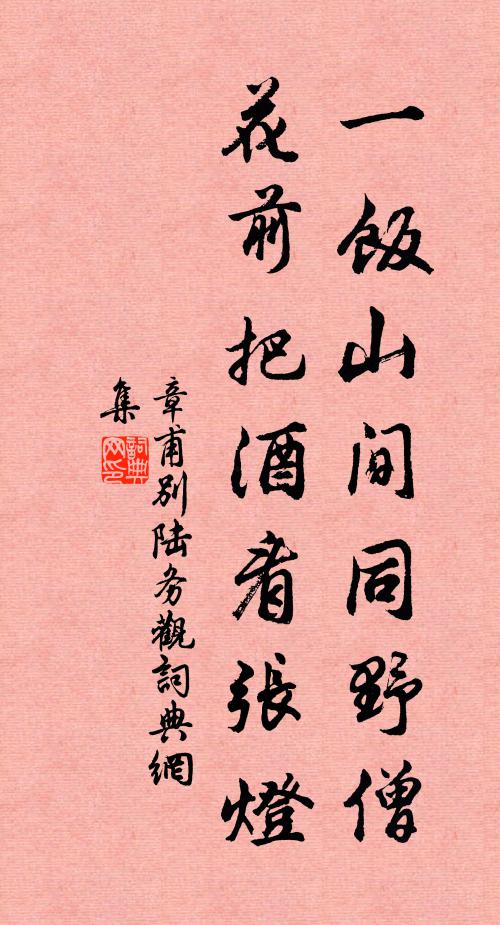 一飯山間同野僧
花前把酒看張燈
章甫別陸务觀詞典網
集
詞典
网印